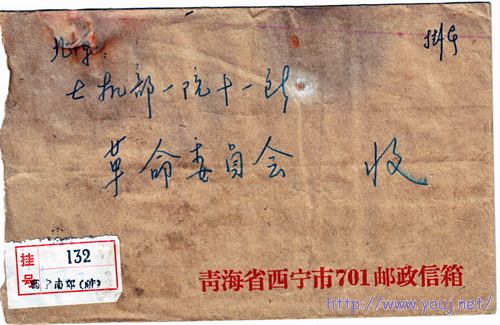 北京
挂号
七机部一院十一所
革命委员会 收
挂号 132
西宁南郊
青海省西宁市701邮政信箱
http://www.youj.net/